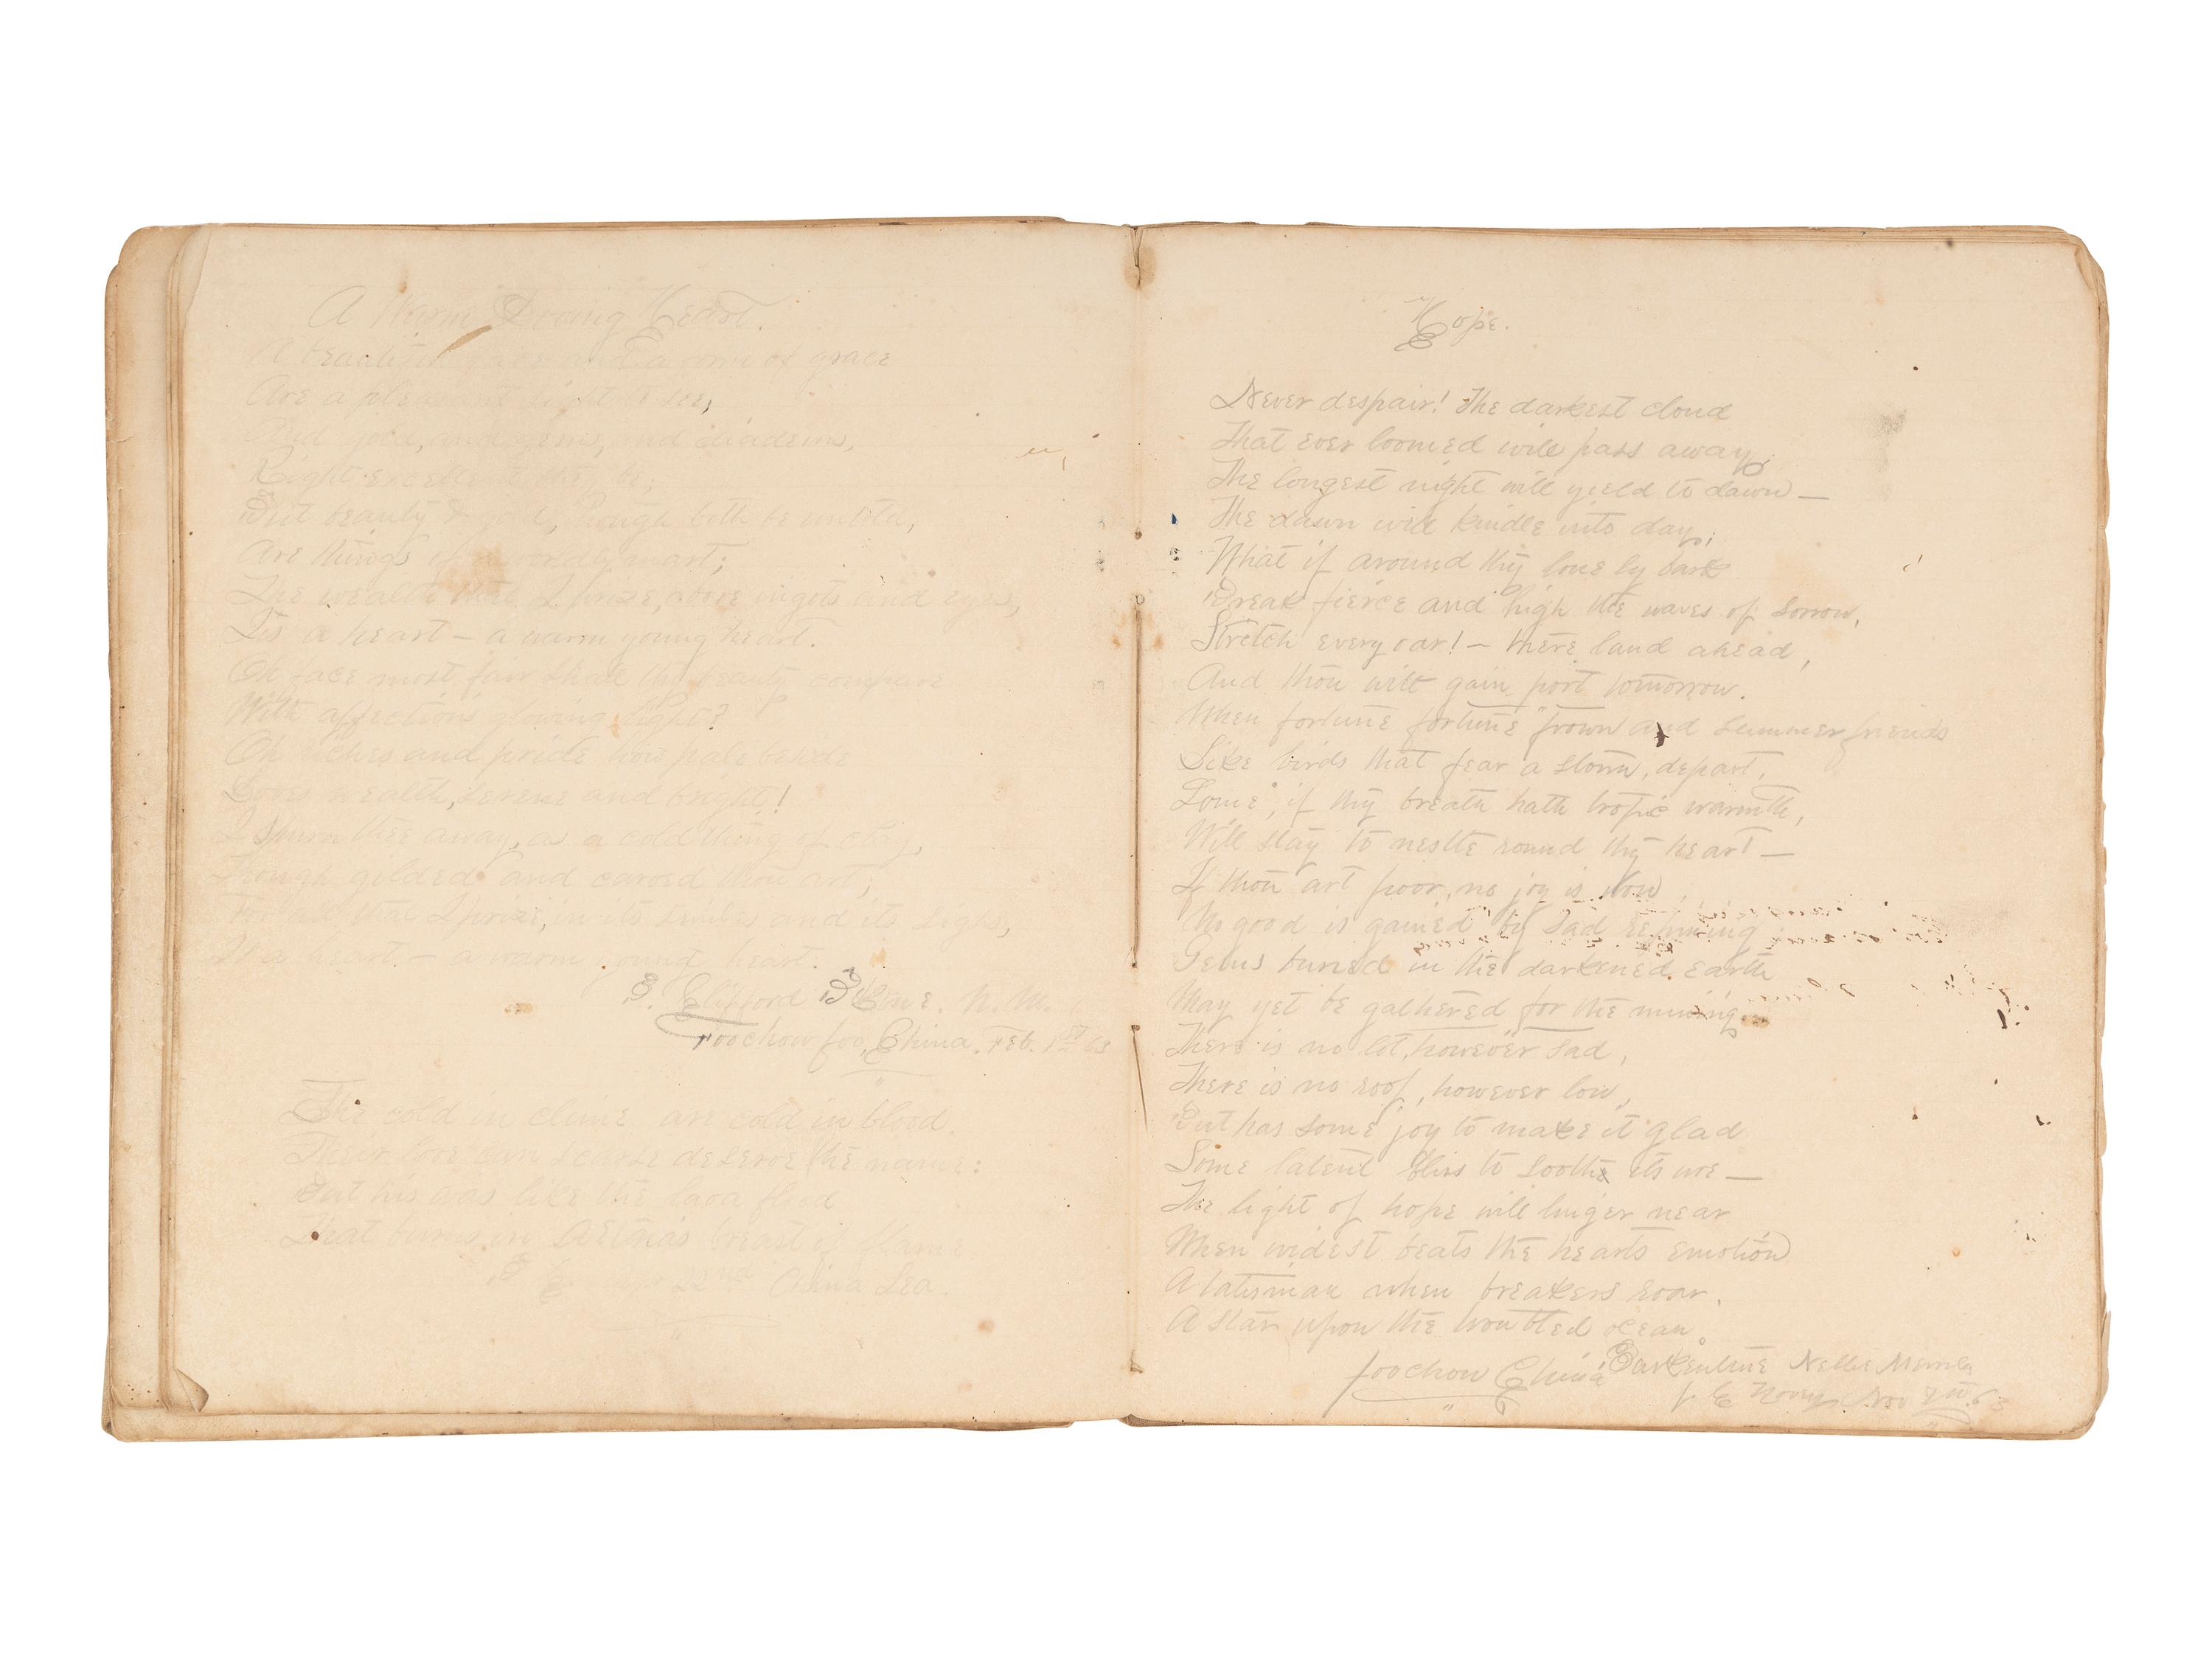 A Warm Loving Heart.
A beautiful face and a form of grace
Are a pleasant sight to see,
And gold, and gems, and diadems,
Right excellent they be;
But beauty & gold, though both be untold,
Are things of a wordly mart;
The wealth that I prize, above ingots and eyes,
Tis a heart – a warm young heart.
Oh face most fair shall thy beauty compare
With affections glowing light?
Oh riches and pride how pale beside
Loves wealth, serene and bright!
I spurn thee away, as a cold thing of clay,
Though gilded and carved thou art;
For all that I prize, in its smiles and its sighs,
Is a heart – a warm young heart.
Clifford N. M.
Foochow foo, China. Feb. 1st 63
The cold in clime are cold in blood.
Their love can scarse deserve the name:
But his was like the lava flood
That burns in AEtnas breast of flame.
22nd China Sea.
Hope.
Never despair! The darkest cloud
That ever loomed will pass away,
The longest night will yield to dawn –
The dawn will kindle into day;
What if around thy lone ly bark
Break fierce and high the waves of sorrow,
Stretch every oar! – there land ahead,
And thou wilt gain port tomorrow.
When fortune fortune frown and summer friends
Like birds that fear a storm, depart,
Some, if thy breath hath tropic warmth,
Will stay to nestle round thy heart –
If thou art poor, no joy is won
No good is gained by sad repining
Gems buried in the darkened earth
May yet be gathered for the mining
There is no lot, however sad,
There is no roof, however low,
But has some joy to make it glad
Some latent bliss to soothe its woe –
The light of hope will linger near
When widest beats the hearts emotion
A talisman when breakers roar,
A star upon the troubled ocean.
Foochow China Barkentine Nellie Merrill
Nov 63